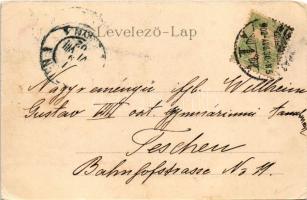 Levelező-Lap
Nagyreményű ifj. Wilheim
Gustav VIII oszt. gymnásiumi tanuló
Teschen
Bahnhofstrasse No 11.